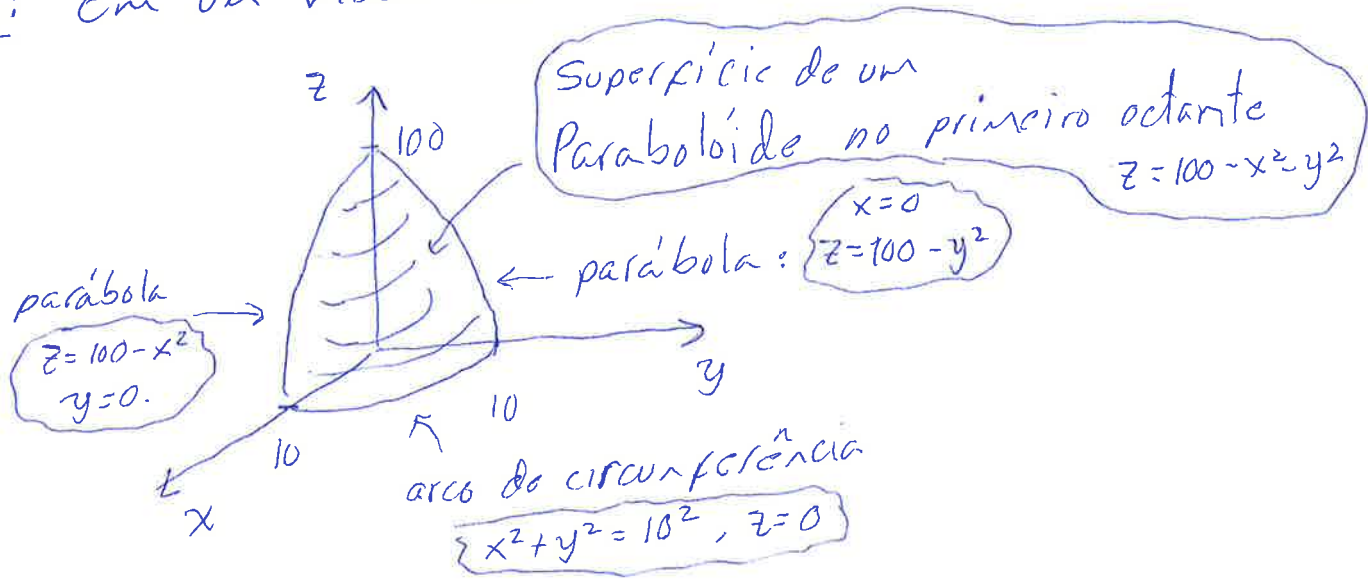 : Em um
z
100
Superfície de um
Parabolóide no primeiro octante
z = 100 - x² - y²
x = 0
z = 100 - y²
← parábola :
parábola
z = 100 - x²
y = 0.
y
10
10
x
arco de circunferência
x² + y² = 10² , z = 0